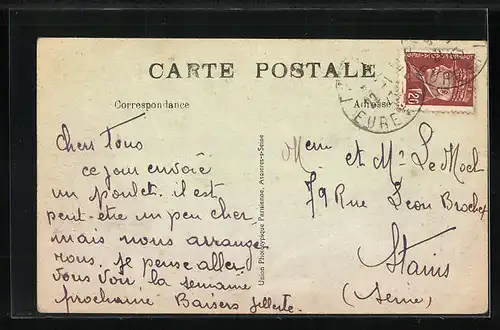 CARTE POSTALE
Correspondance
Adresse
EURE
1F20
Chers Tous
ce jour envoie
un poulet. il est
peut-etre un peu cher
mais nous arrange
rons. je pense aller
vous voir, la semaine
prochaine Baisers
Union Photographique Parisienne, Asnières-s-Seine
et Mr Le Moch
79 Rue Leon Brochet
Stains
(Seine)